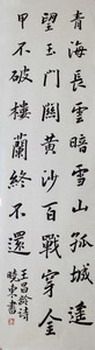 青海長雲暗雪山孤城遥
望玉門關黄沙百戰穿金
甲不破樓蘭終不還
王昌龄诗
晓東書